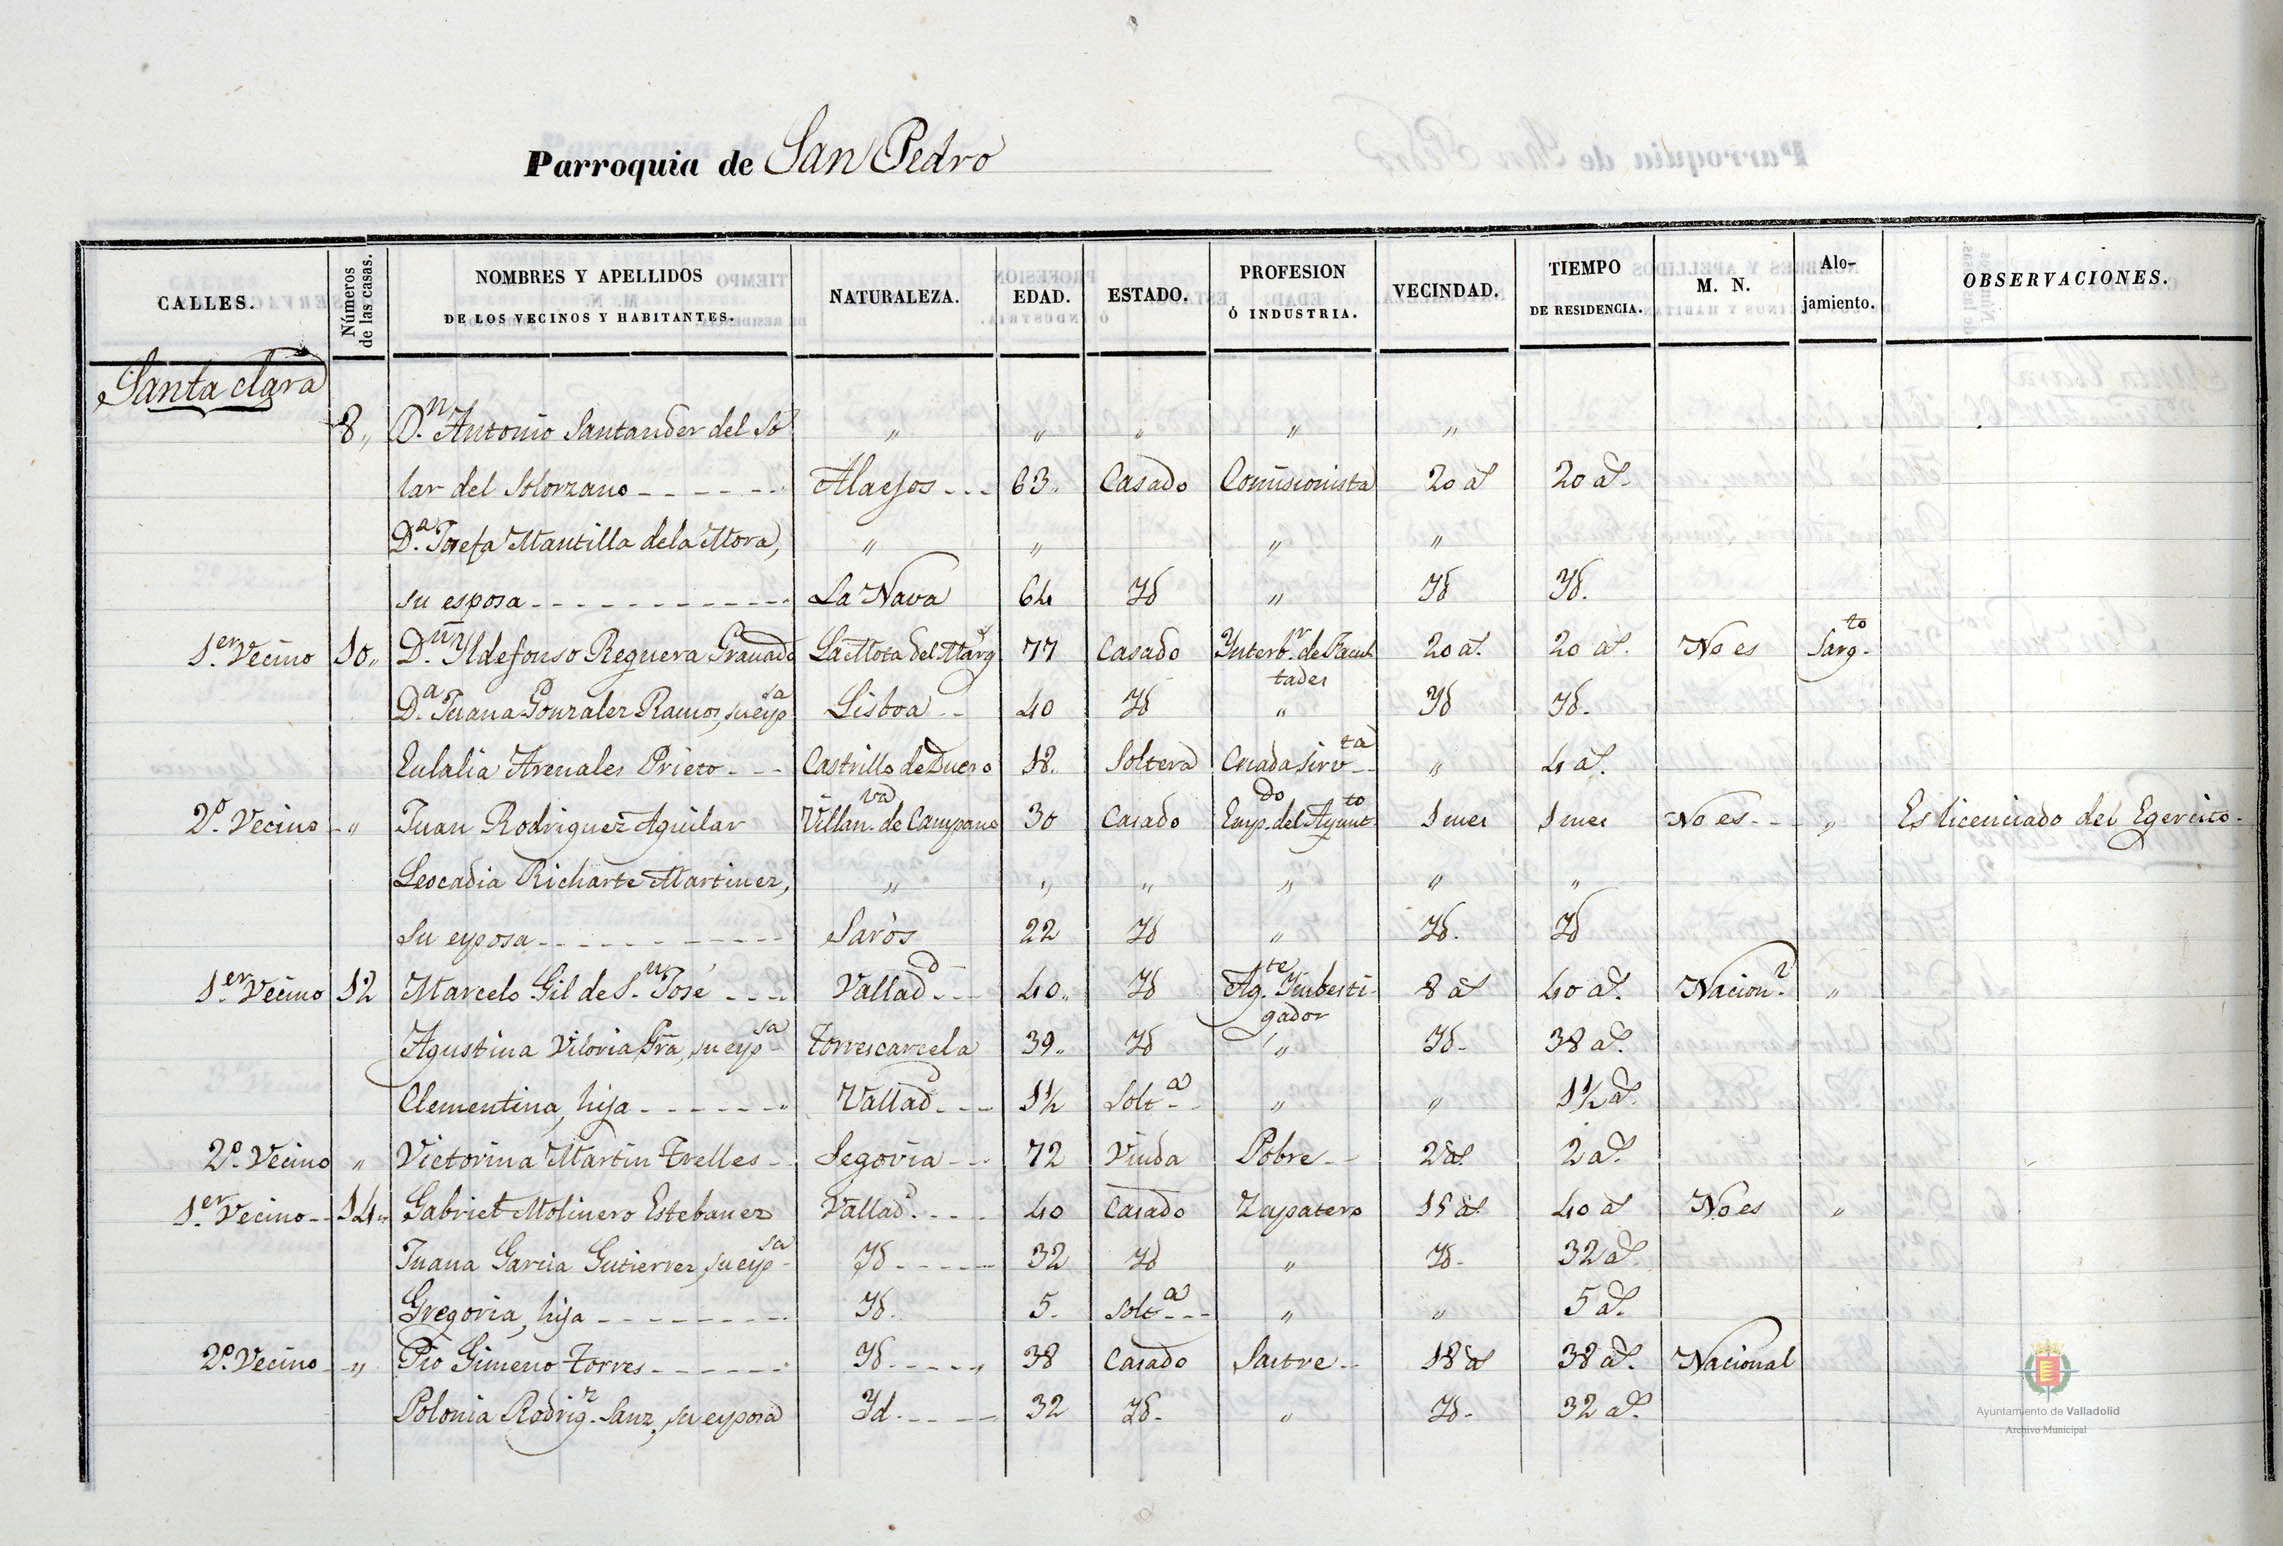 Parroquia de San Pedro
CALLES. Números de las casas. NOMBRES Y APELLIDOS DE LOS VECINOS Y HABITANTES. NATURALEZA. EDAD. ESTADO. PROFESION Ó INDUSTRIA. VECINDAD. TIEMPO DE RESIDENCIA. M. N. Alojamiento. OBSERVACIONES.
Santa clara
8 „ D.n Antonio Santander del So „ „ „ „ „
lar del Solorzano Alaejos 63 Casado Comisionista 20 a.s 20 a.s
D.a Josefa Mantilla de la Mora, „ „ „ „
su esposa La Nava 64 Id „ Id Id.
1.er Vecino 10 „ D.n Yldefonso Reguera Granado La Mota del Marq.s 77 Casado Ynterb.r de Facul 20 a.s 20 a.s No es Sarg.to
tades
D.a Juana Gonzalez Ramos, su esp.sa Lisboa 40 Id „ Id Id.
Eulalia Arenales Prieto Castrillo de Duero 18 Soltera Criada sirv.ta „ 4 a.s
2.o Vecino „ Juan Rodriguez Aguilar Villan.va de Campano 30 Casado Emp.do del Ayunt.to 1 mes 1 mes No es „ Es licenciado del Egercito.
Leocadia Richarte Martinez, „ „ „ „ „ „
su esposa Sarós 22 Id „ Id. Id
1.er Vecino 12 Marcelo Gil de S.n José Vallad.d 40 Id Ag.te Imbesti- 8 a.s 40 a.s Nacion.l „
gador
Agustina Viloria Gra, su esp.sa Torrescarcela 39 Id „ Id. 38 a.s
Clementina, hija Vallad.d 1½ Solt.a „ „ 1½ a.s
2.o Vecino „ Victorina Martin Trelles Segovia 72 Viuda Pobre 2 a.s 2 a.s
1.er Vecino 14 „ Gabriel Molinero Estebanez Vallad.d 40 Casado Zapatero 15 a.s 40 a.s No es „
Juana Garcia Gutierrez, su esp.sa Id 32 Id „ Id. 32 a.s
Gregoria, hija Id. 5. Solt.a „ „ 5 a.s
2.o Vecino „ Pio Gimeno Torres Id 38 Casado Sastre 18 a.s 38 a.s Nacional
Polonia Rodrig.z Sanz, su esposa Id. 32 Id. „ Id. 32 a.s
Ayuntamiento de Valladolid
Archivo Municipal